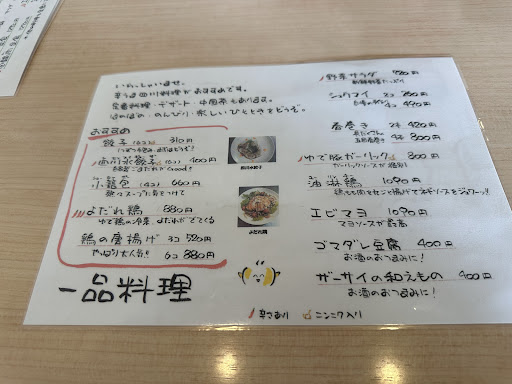 いらっしゃいませ。
辛うま四川料理がおすすめです。
定番料理・デザート・中国茶もあります。
ほのぼの、のんびり、楽しいひとときをどうぞ。
おすすめ
餃子(6コ) 310円
四川水餃子(6コ) 400円
小籠包(4コ) 660円
熱々スープに気をつけて
よだれ鶏 880円
ゆで鶏の冷菜 よだれがでてくる
鶏の唐揚げ 3コ 520円
やっぱり大人気!! 6コ 880円
一品料理
野菜サラダ
シュウマイ 2コ
春巻き 2本 420円
4本 800円
ゆで豚ガーリック 800円
油淋鶏 1090円
鶏もも肉を丸ごと揚げてネギソースをジュワーッ!!
エビマヨ 1090円
マヨソースが最高
ゴマダレ豆腐 400円
お酒のおつまみに!
ザーサイの和えもの 400円
お酒のおつまみに!
よだれ鶏
辛さあり ニンニク入り